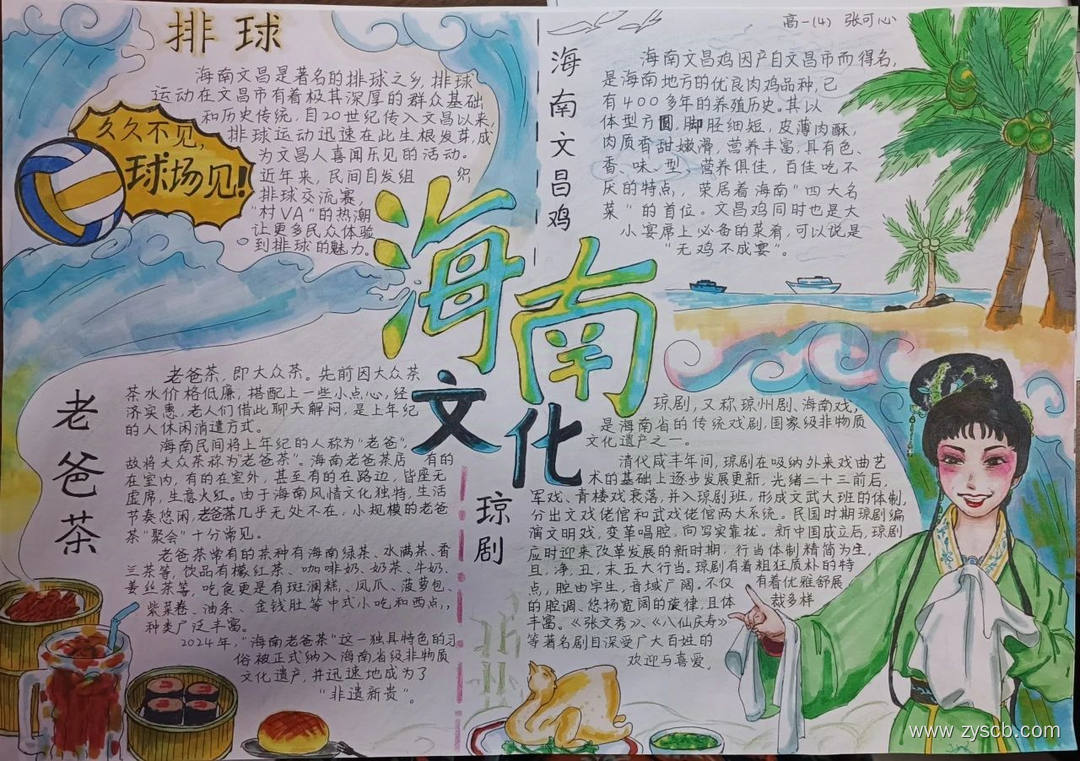 排球
海南文昌是著名的排球之乡,排球
运动在文昌市有着极其深厚的群众基础
和历史传统,自20世纪传入文昌以来,
排球运动迅速在此生根发芽,成
为文昌人喜闻乐见的活动。
近年来,民间自发组织
排球交流赛,
"村VA"的热潮
让更多民众体验
到排球的魅力。
久久不见,
球场见!
高一(4) 张可心
海南文昌鸡
海南文昌鸡因产自文昌市而得名,
是海南地方的优良肉鸡品种,已
有400多年的养殖历史。其以
体型方圆,脚胫细短,皮薄肉酥,
肉质香甜嫩滑,营养丰富,具有色、
香、味、型、营养俱佳,百佳吃不
厌的特点,荣居着海南"四大名
菜"的首位。文昌鸡同时也是大
小宴席上必备的菜肴,可以说是
"无鸡不成宴"。
海南
文化
老爸茶
老爸茶,即大众茶。先前因大众茶
茶水价格低廉,搭配上一些小点心,经
济实惠,老人们借此聊天解闷,是上年纪
的人休闲消遣方式。
海南民间将上年纪的人称为"老爸",
故将大众茶称为"老爸茶"。海南老爸茶店有的
在室内,有的在室外,甚至有的在路边,皆座无
虚席,生意火红。由于海南风情文化独特,生活
节奏悠闲,老爸茶几乎无处不在,小规模的老爸
茶"聚会"十分常见。
老爸茶常有的茶种有海南绿茶、水满茶、香
兰茶等,饮品有檬红茶、咖啡奶、奶茶、牛奶、
姜丝茶等,吃食更是有斑斓糕、凤爪、菠萝包、
紫菜卷、油条、金钱肚等中式小吃和西点,
种类广泛丰富。
2024年,"海南老爸茶"这一独具特色的习
俗被正式纳入海南省级非物质
文化遗产,并迅速地成为了
"非遗新贵"。
琼剧
琼剧,又称琼州剧、海南戏,
是海南省的传统戏剧,国家级非物质
文化遗产之一。
清代咸丰年间,琼剧在吸纳外来戏曲艺
术的基础上逐步发展更新,光绪二十三前后,
军戏、青楼戏衰落,并入琼剧班,形成文武大班的体制,
分出文戏佬倌和武戏佬倌两大系统。民国时期琼剧编
演文明戏,变革唱腔,向写实靠拢。新中国成立后,琼剧
应时迎来改革发展的新时期,行当体制精简为生、
旦、净、丑、末五大行当。琼剧有着粗狂质朴的特
点,腔由字生,音域广阔,不仅有着优雅舒展
的腔调、悠扬宽阔的旋律,且体裁多样
丰富。《张文秀》、《八仙庆寿》
等著名剧目深受广大百姓的
欢迎与喜爱。
www.zyscb.com